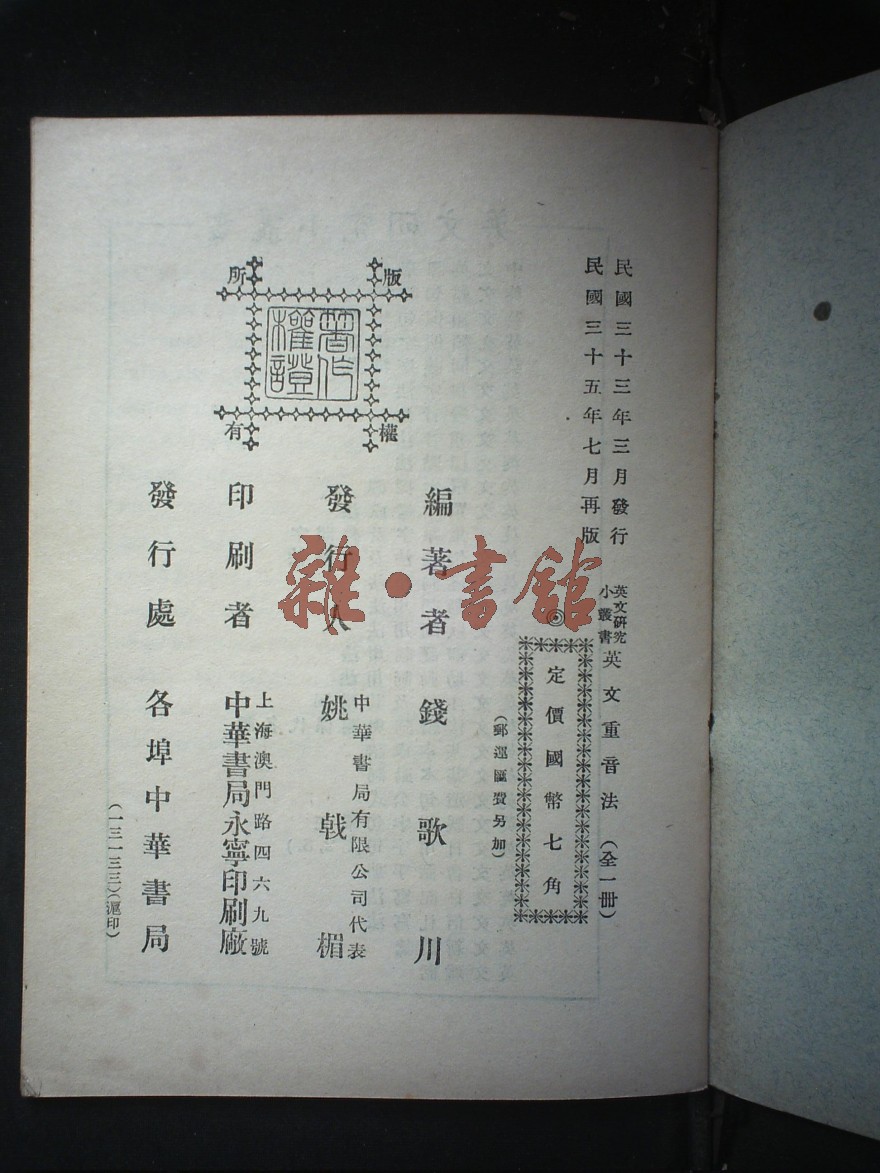 民國三十三年三月發行
民國三十五年七月再版
英文研究
小叢書
英文重音法(全一冊)
◎定價國幣七角
(郵運匯費另加)
版權所有
著作權證
編著者 錢歌川
發行人 中華書局有限公司代表
姚戟楣
印刷者 上海澳門路四六九號
中華書局永寧印刷廠
發行處 各埠中華書局
(一三一三三)(滬印)
雜·書館